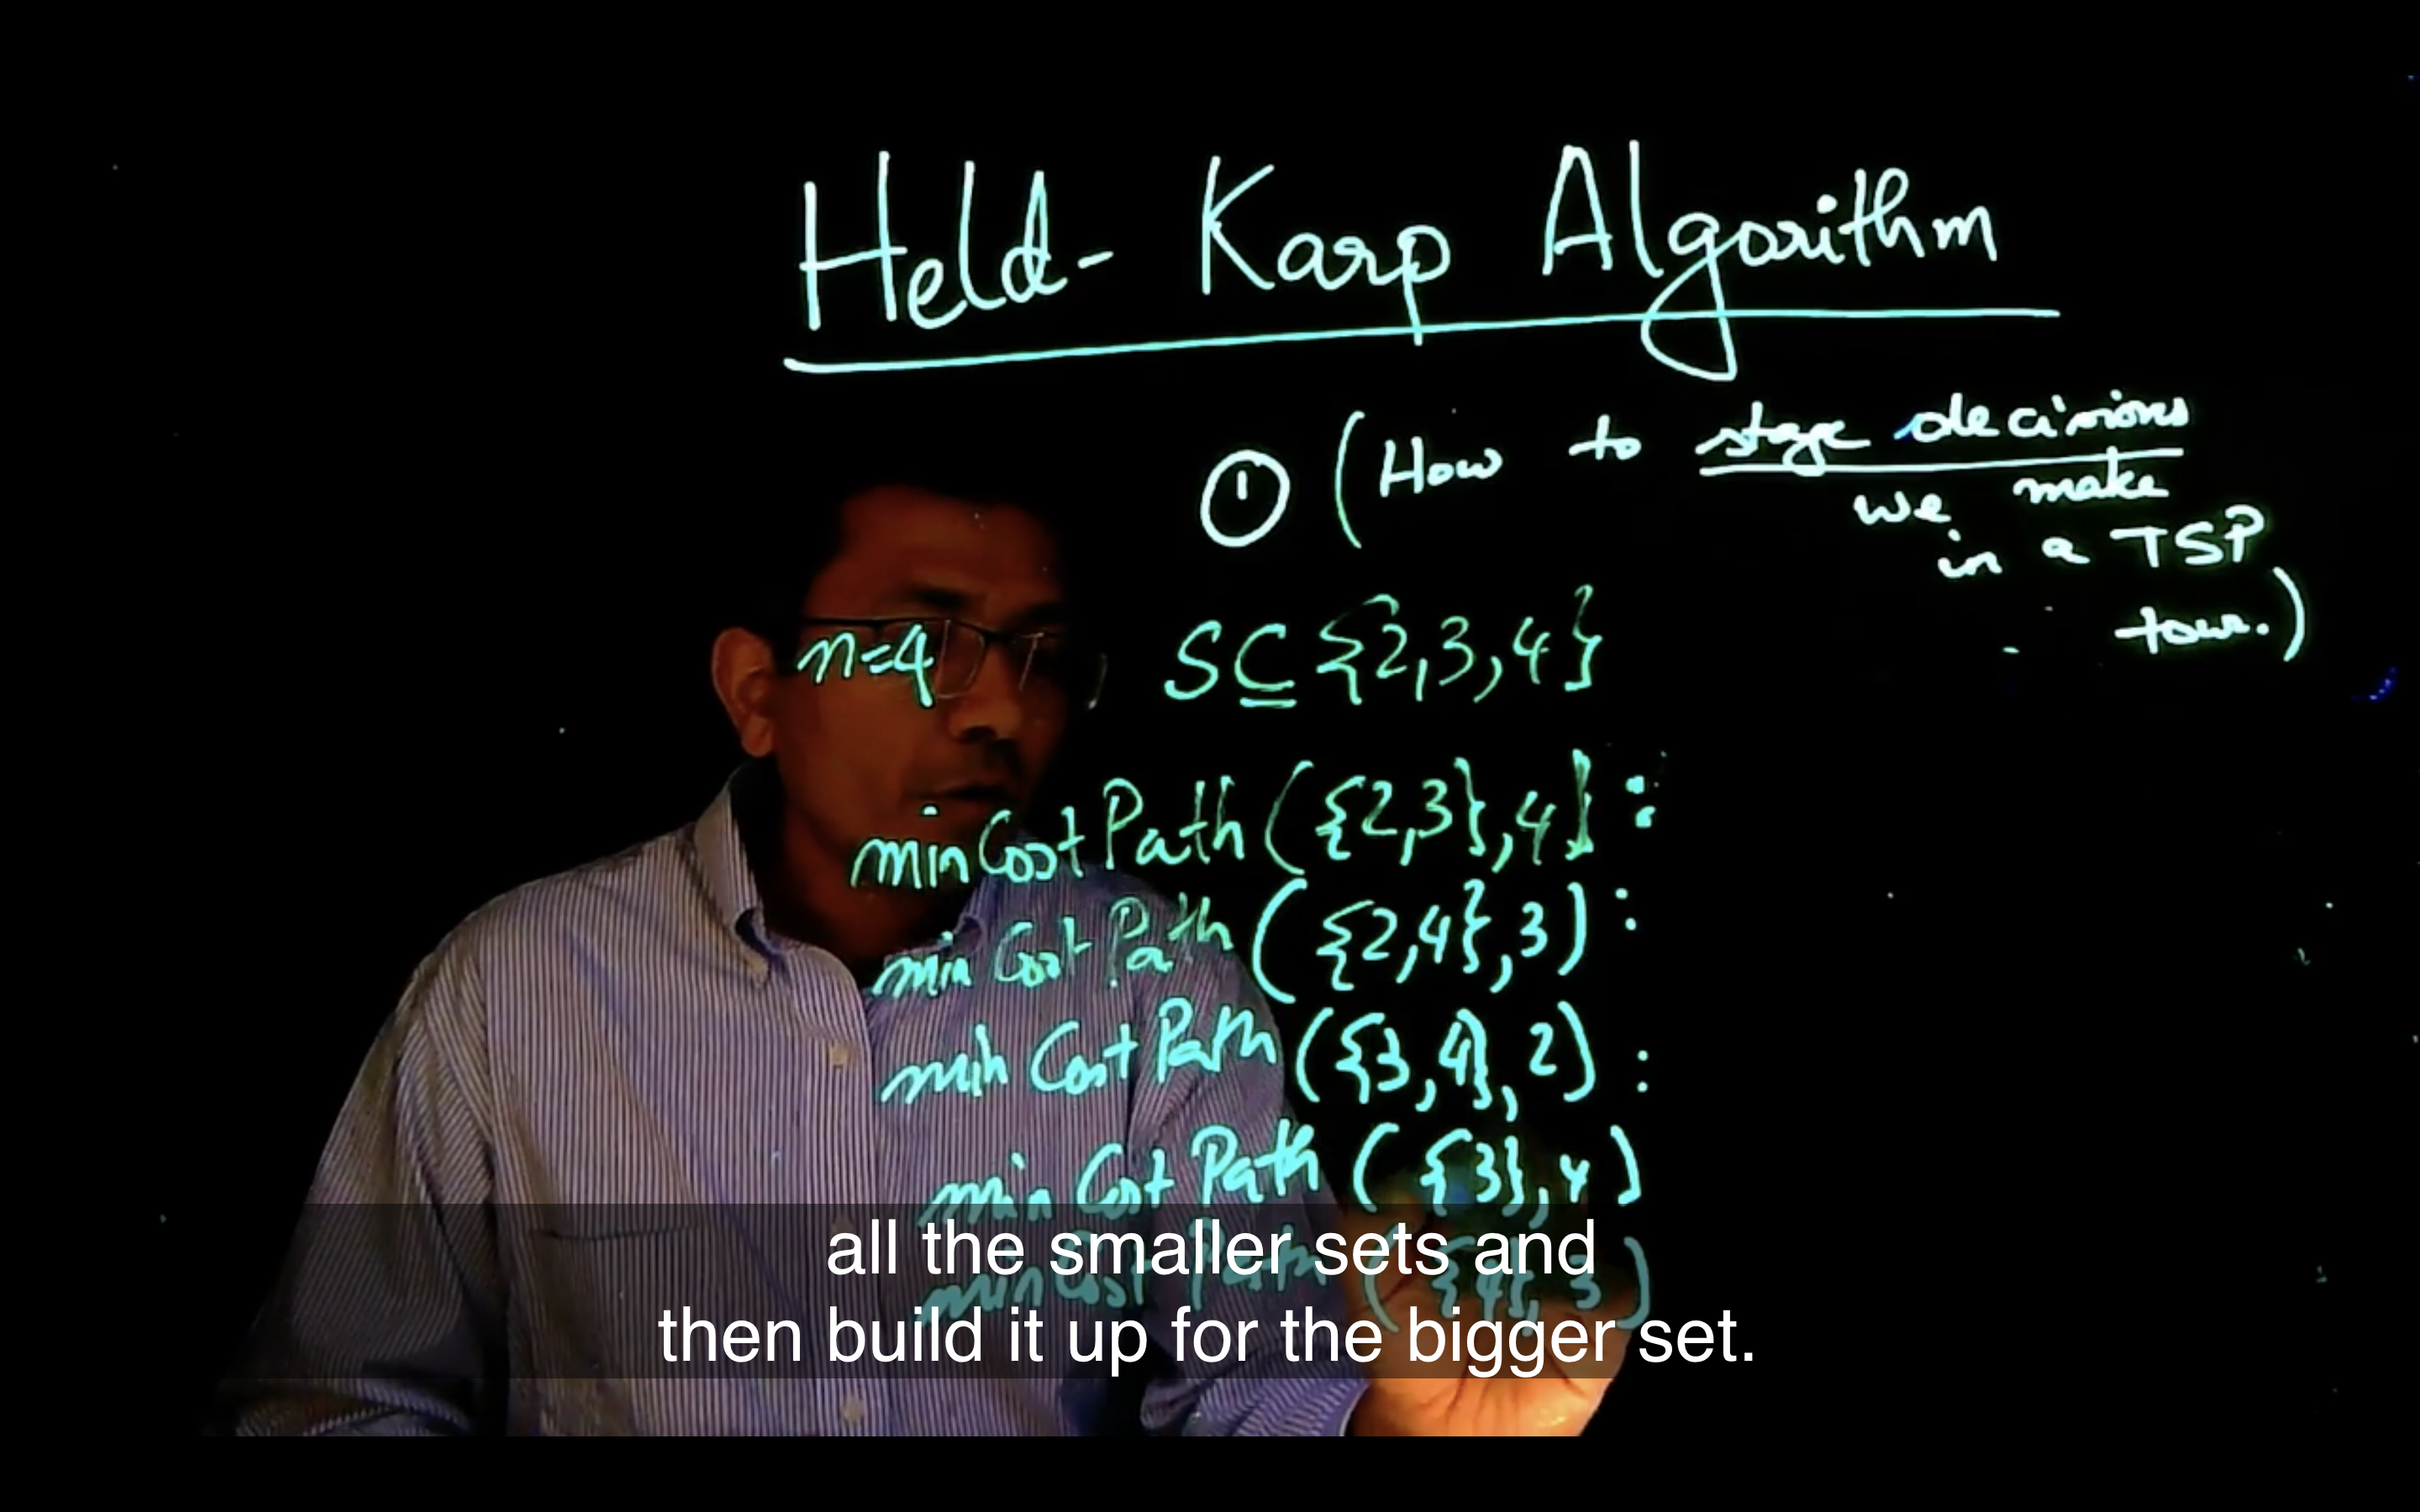 Held-Karp Algorithm
① (How to stage decisions
we make
in a TSP
tour.)
n=4, S⊆{2,3,4}
minCostPath({2,3},4}:
minCostPath({2,4},3):
minCostPath({3,4},2):
minCostPath({3},4)
minCostPath({4},3)
all the smaller sets and
then build it up for the bigger set.